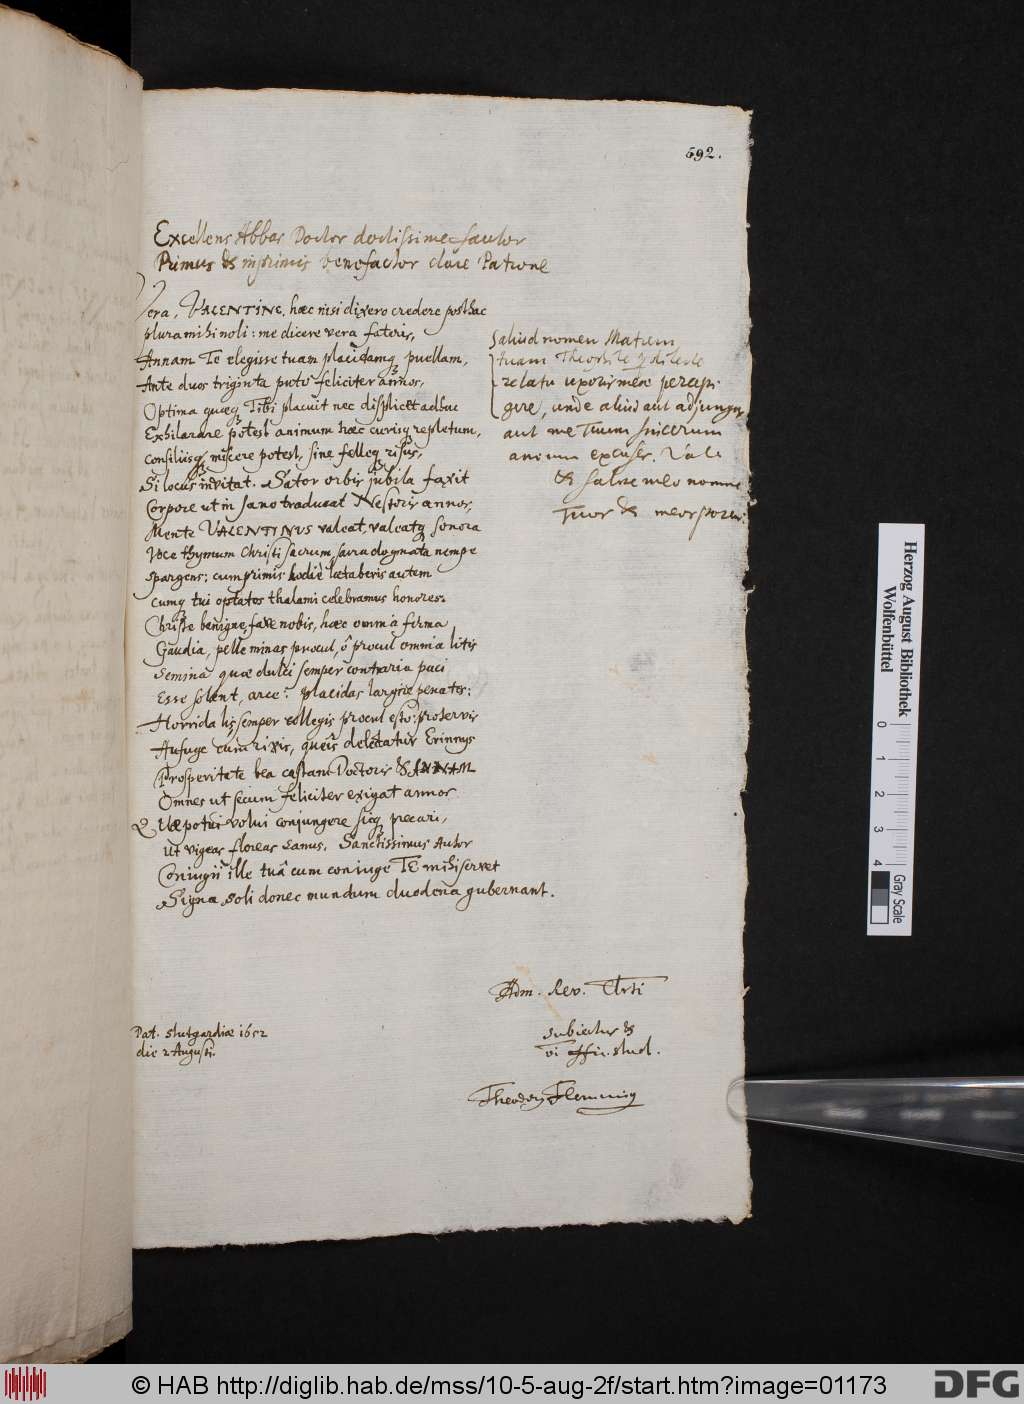 592.
Excellens Abbas Doctor doctissime fautor
Primus & inprimis benefactor clare Patrone
Vera, VALENTINE, hæc nisi dixero credere posthac
plura mihi noli: me dicere vera fateris,
Annam Te elegisse tuam placidamq puellam,
Ante duos triginta puto feliciter annos,
Optima quæq Tibi placuit nec displicet adhuc
Exhilarare potest animum hæc curisq repletum,
Consiliisq miscere potest, sine felleq risus,
Si locus invitat. Sator orbis jubila faxit
Corpore ut in sano traducat Nestoris annos,
Mente VALENTINUS valeat, valeatq sonora
Voce thymum Christi sacrum, sacra dogmata nempe
spargens: cumprimis hodie lætaberis autem
cumq tui optatos thalami celebramus honores.
Christe benigne, fave nobis, hæc omnia firma
Gaudia, pelle minas procul, ô procul omnia litis
Semina quæ dulci semper contraria paci
Esse solent, arce: placidas largire penates:
Horrida lis semper collegis procul esto: protervis
Aufuge cum rixis, queis delectatur Erinnys
Prosperitate bea castam Doctoris & ANNAM
Omnes ut secum feliciter exigat annos
Quæ potui volui conjungere sicq precari,
Ut vigeas floreas sanus. Sanctissimus Autor
Conjugii ille tuâ cum conjuge TE mihi servet
Signa soli donec mundum duodena gubernant.
aliud nomen Matrem
tuam
relatu uxoris meæ percepi
unde aliud aut adjunge
aut me Tuum sincerum
amicum excuses. Vale
& salve meo nomine
Tuos & meos
Adm. Rev.
subjectus &
stud.
Theodor Flemming
Dat. stutgardiæ 1652
die 2 Augusti.
Herzog August Bibliothek
Wolfenbüttel
0 1 2 3 4
Gray Scale
© HAB http://diglib.hab.de/mss/10-5-aug-2f/start.htm?image=01173
DFG